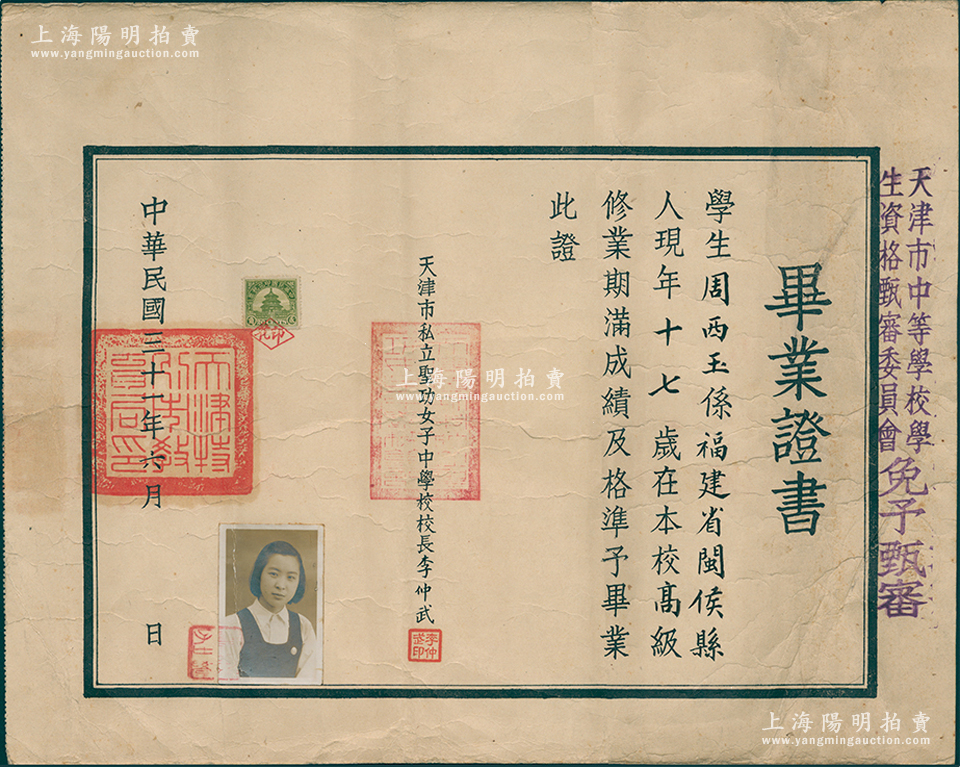 上海陽明拍賣
www.yangmingauction.com
天津市中等學校學
生資格甄審委員會
免予甄審
畢業證書
學生周西玉係福建省閩侯縣
人現年十七歲在本校高級
修業期滿成績及格準予畢業
此證
天津市私立聖功女子中學校校長李仲武
李仲
武印
上海陽明拍賣
www.yangmingauction.com
中華民國三十一年六月 日
天津特
別市教
育局印
上海陽明拍賣
www.yangmingauction.com